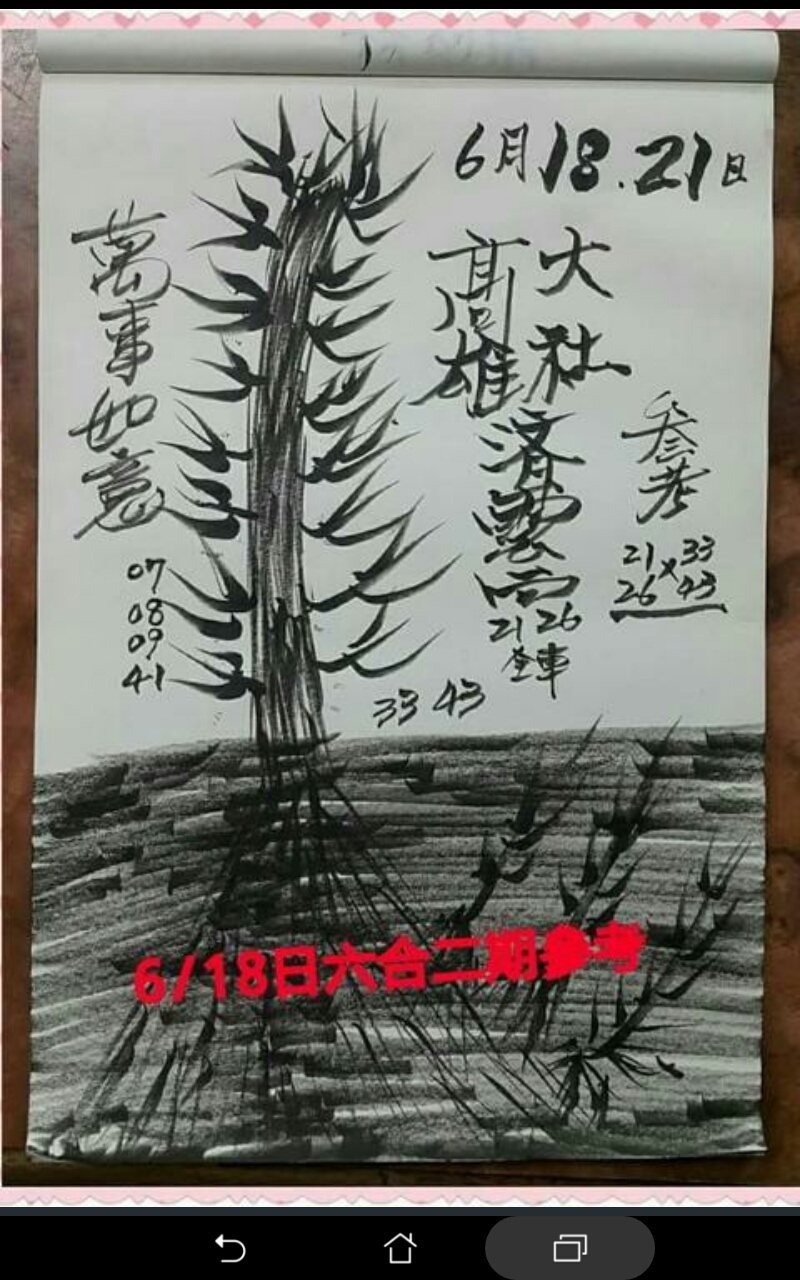 6月18.21日
大社
高雄
濟雲宮
21 26
全車
參考
21×33
26 43
萬事如意
07
08
09
41
33 43
6/18日六合二期參考